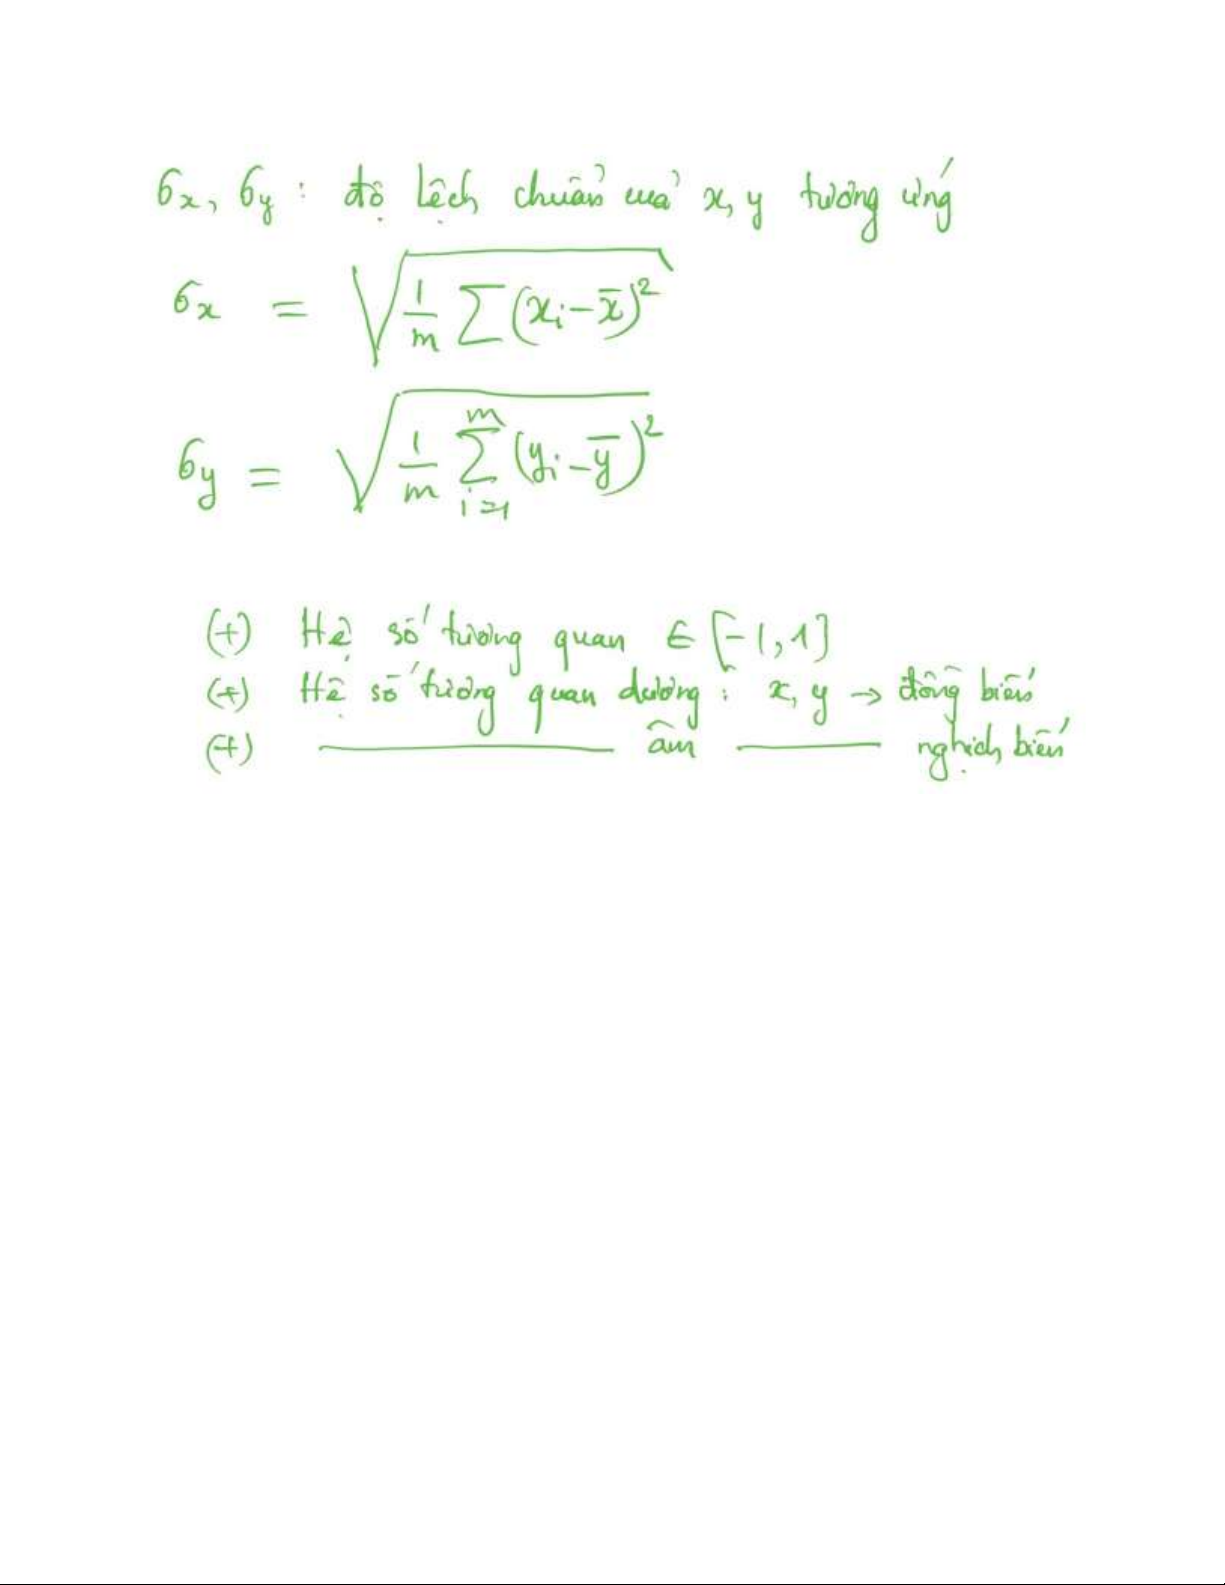 σx, σy : độ lệch chuẩn của x, y tương ứng
σx = √(1/m ∑ (xi − x̄)²)
σy = √(1/m ∑_{i=1}^{m} (yi − ȳ)²)
(+) Hệ số tương quan ∈ [−1, 1]
(+) Hệ số tương quan dương : x, y → đồng biến
(+) ———————— âm ———— nghịch biến